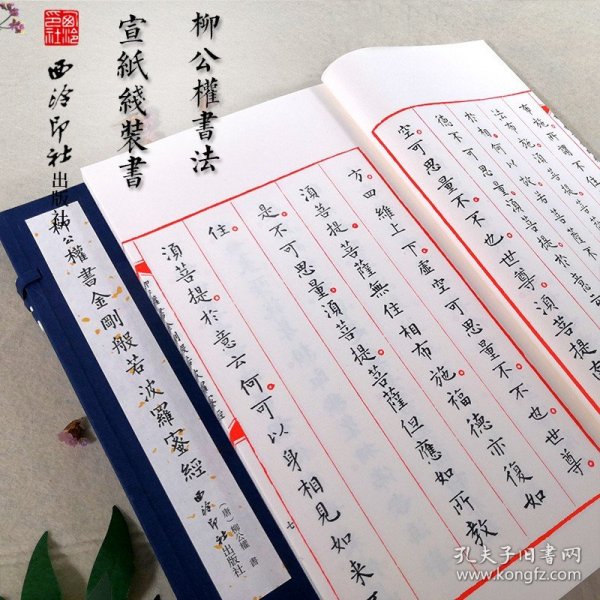 柳公權書法
宣紙綫裝書
西泠印社
西泠印社出版社
柳公權書金剛般若波羅蜜經
(唐)柳公權 書
西泠印社出版社
布施所謂不住
法布施須菩提菩薩
於相何以故
德不可思量須菩提於意
空可思量不不也世尊須菩提南
方四維上下虛空可思量不不也世尊
須菩提菩薩無住相布施福德亦復如
是不可思量須菩提菩薩但應如所教
住
須菩提於意云何可以身相見如來
七
孔夫子旧书网
www.kongfz.com